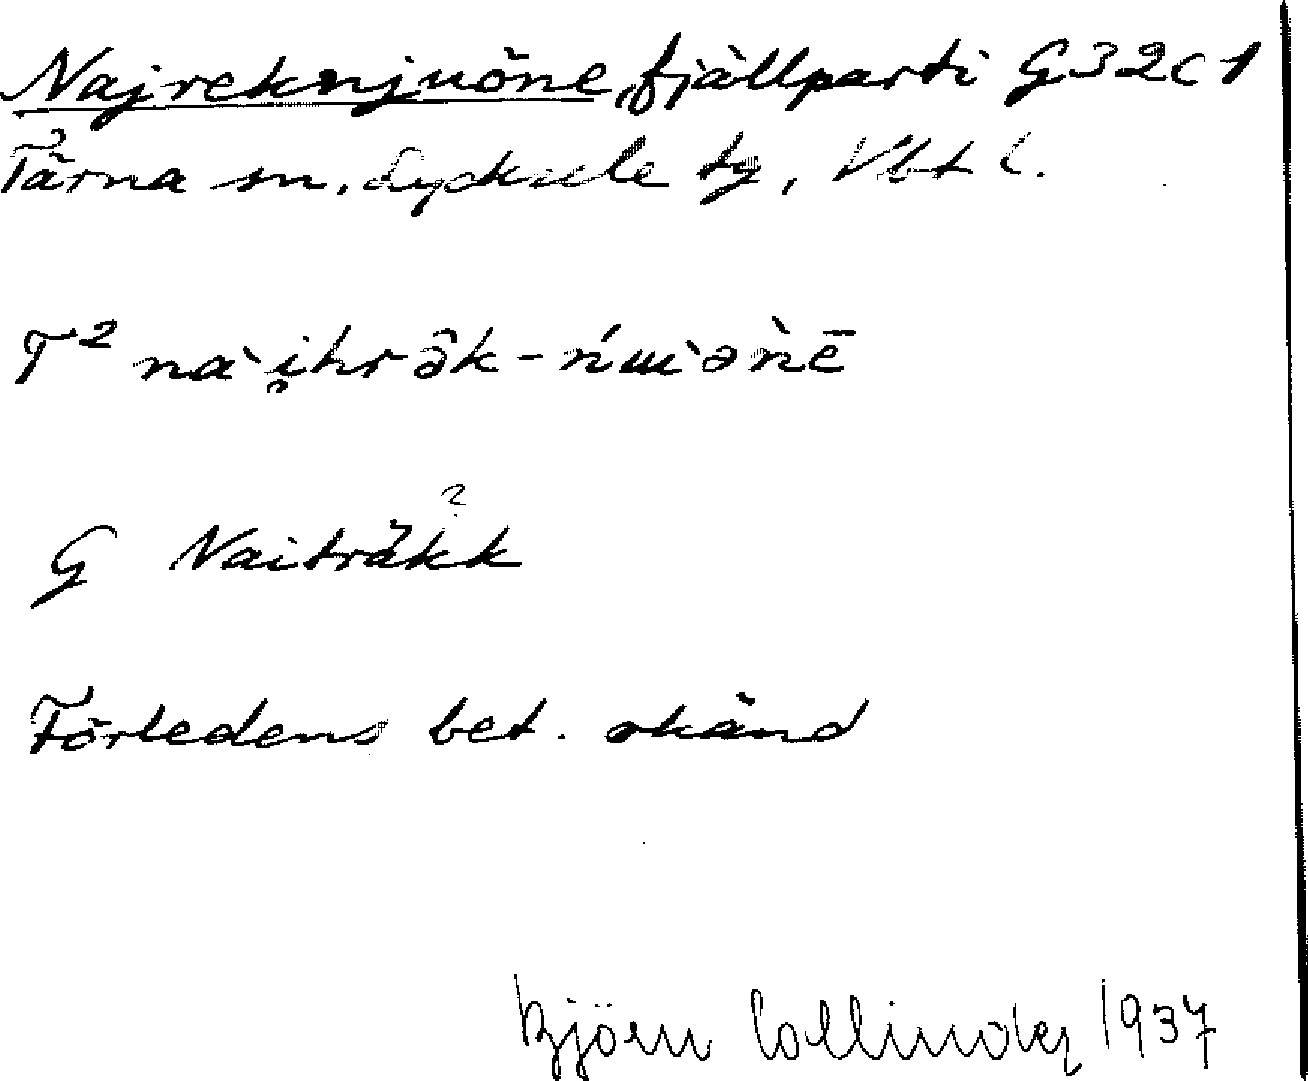 Najreknjuöne, fjällparti G32c1
Tärna sn, Lycksele tg, Vbt l.
T² nàᶖhrə̂k-ńɯ̀əǹē
?
G Naiträkk
Förledens bet. okänd
Björn Collinder 1937